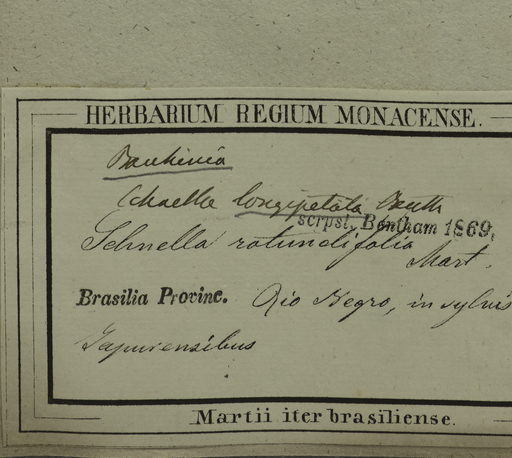 HERBARIUM REGIUM MONACENSE.
Bauhinia
Schnella longipetala Benth
scrpst. Bentham 1869.
Schnella rotundifolia
Mart.
Brasilia Provinc. Rio Negro, in sylvis
Japurensibus
Martii iter brasiliense.